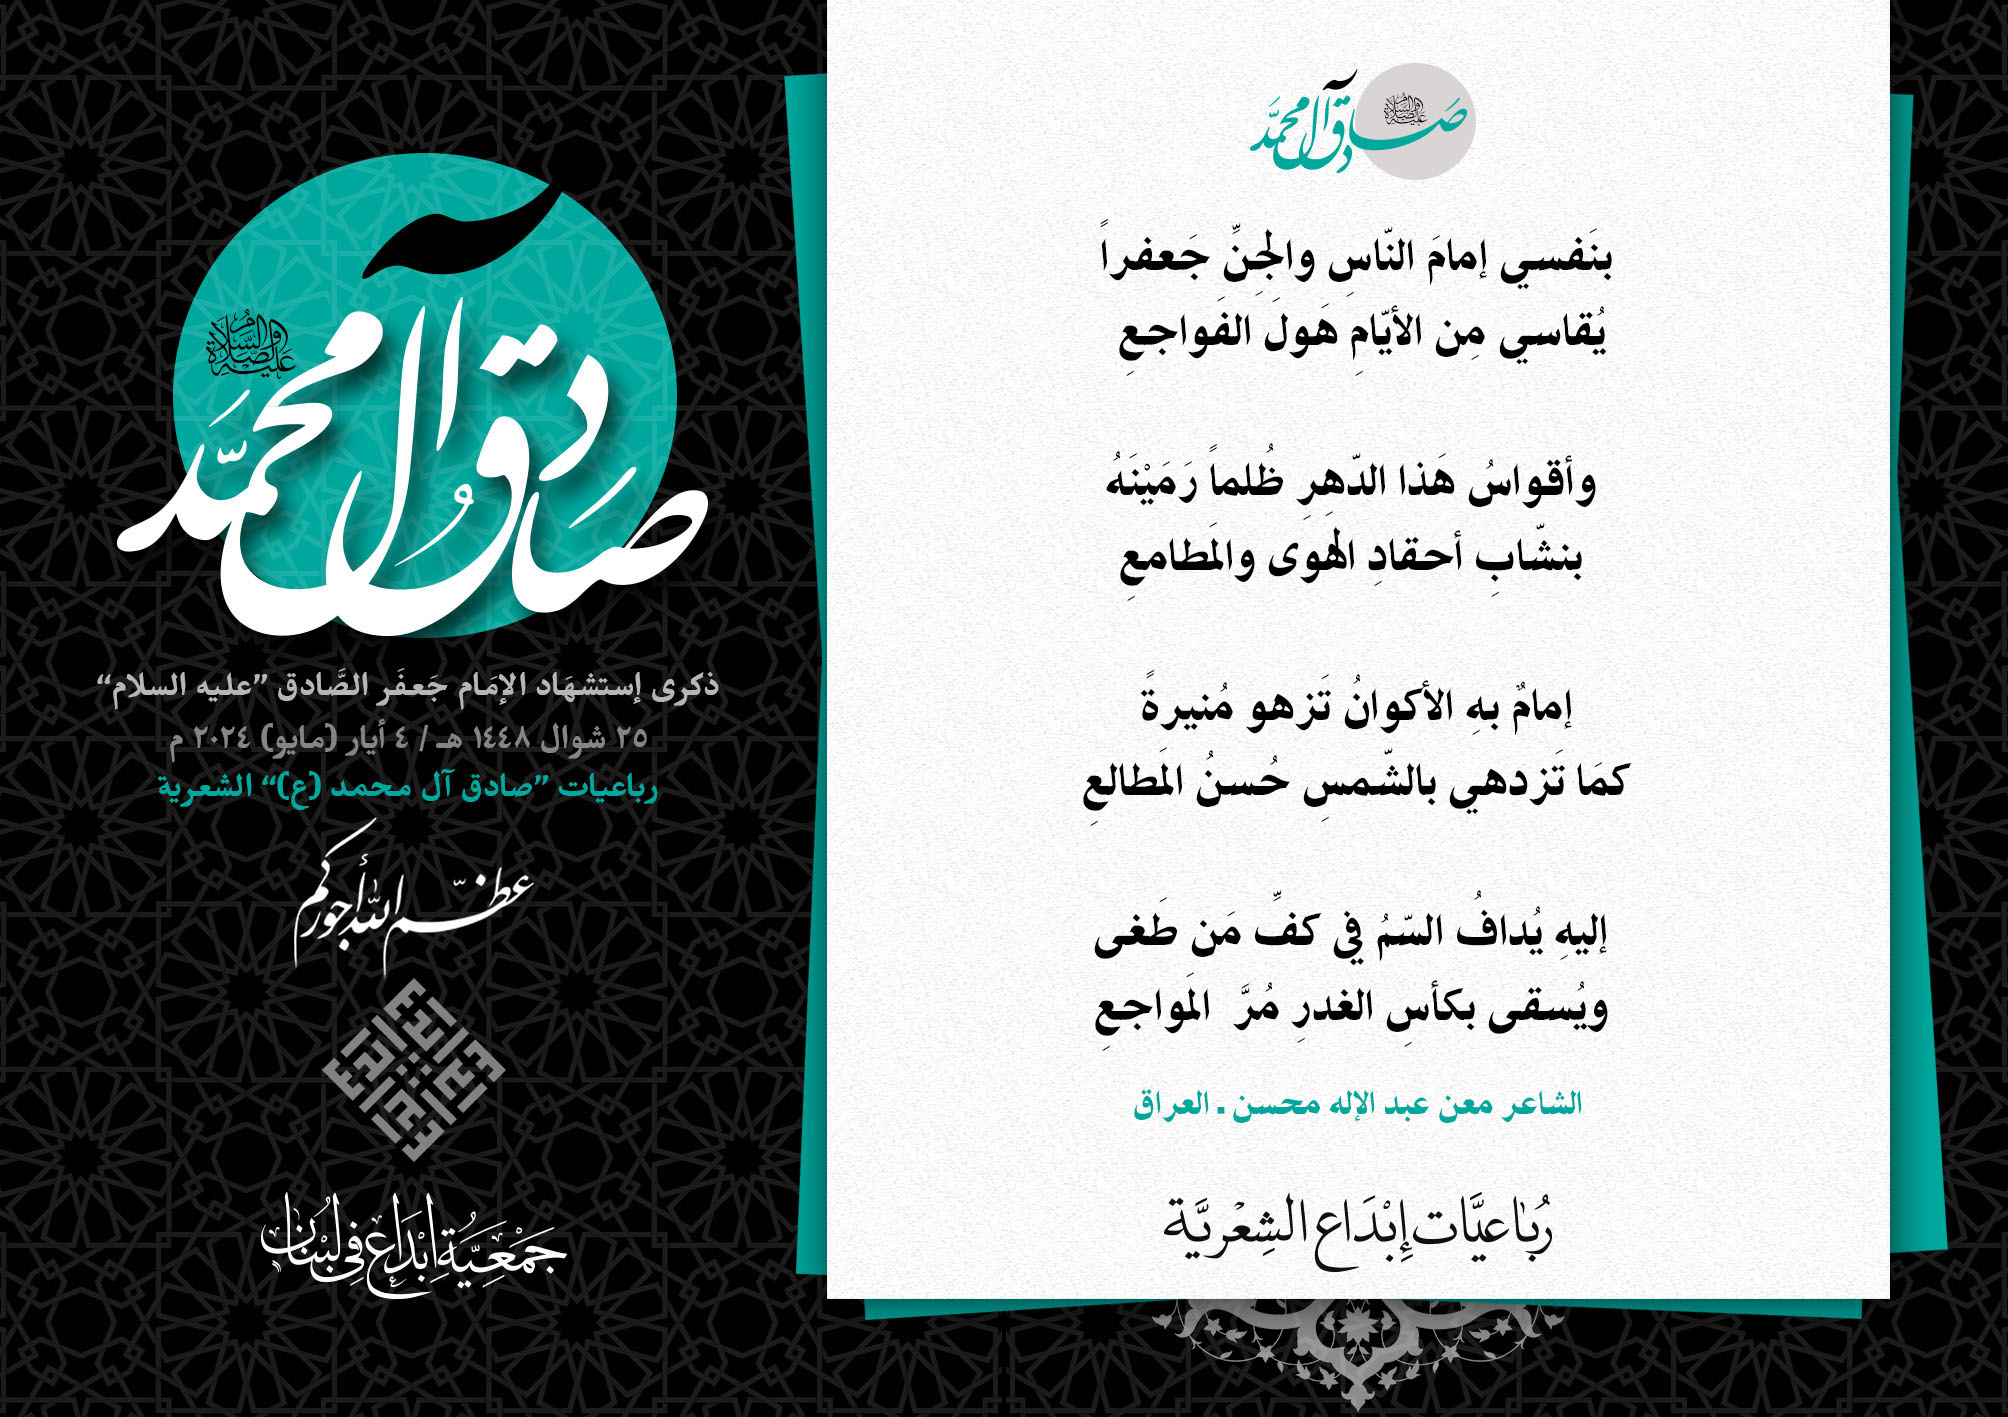 صادق آل محمد
عليه الصلاة والسلام
بنَفسي إمامَ النّاسِ والجِنِّ جَعفراً
يُقاسي مِن الأيّامِ هَولَ الفَواجعِ
وأقواسُ هَذا الدّهِرِ ظُلماً رَمَيْنَهُ
بنشّابِ أحقادِ الهوى والمَطامعِ
إمامٌ بهِ الأكوانُ تَزهو مُنيرةً
كمَا تَزدهي بالشّمسِ حُسنُ المَطالعِ
إليهِ يُدافُ السّمُ في كفِّ مَن طَغى
ويُسقى بكأسِ الغدرِ مُرَّ المَواجعِ
الشاعر معن عبد الإله محسن . العراق
رُبَاعيَّات إِبْدَاع الشِعْريَّة
صَادِق آل محمَّد
عليه الصلاة والسلام
ذكرى إستشهَاد الإمَام جَعفَر الصَّادق ”عليه السلام“
٢٥ شوال ١٤٤٨ هـ / ٤ أيار (مايو) ٢٠٢٤ م
رباعيات ”صادق آل محمد (ع)“ الشعرية
عظّم الله أجوركم
جَمْعِيَّة إبْدَاع فِي لبْنَان